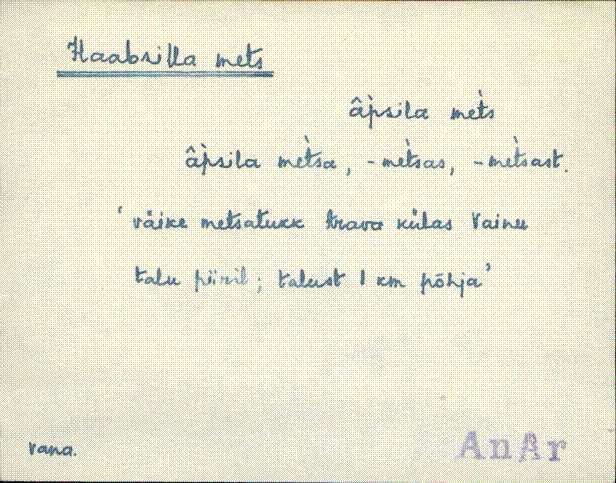 Haabsilla mets
âp̀sila met̀s
âp̀sila met̀sa, -met̀sas, -met̀sast.
'väike metsatukk Arava külas Vainu
talu piiril; talust 1 km põhja'
vana.
AnAr